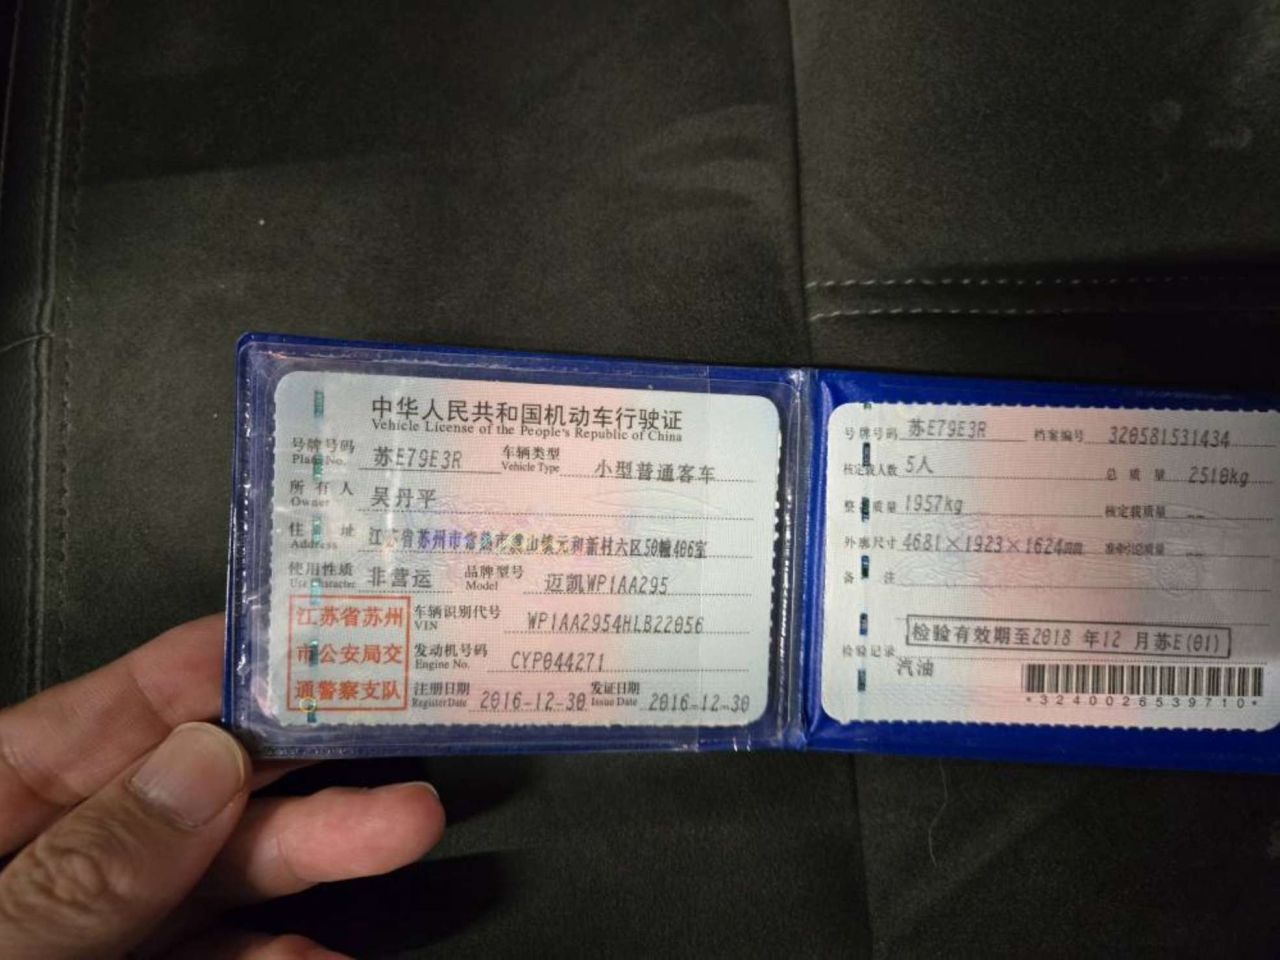 中华人民共和国机动车行驶证
Vehicle License of the People's Republic of China
号牌号码 苏E79E3R 车辆类型 小型普通客车
Plate No. Vehicle Type
所有人 吴丹平
Owner
住址 江苏省苏州市常熟市虞山镇元和新村六区50幢406室
Address
使用性质 非营运 品牌型号 迈凯WP1AA295
Use Character Model
江苏省苏州
市公安局交
通警察支队
车辆识别代号 WP1AA2954HLB22056
VIN
发动机号码 CYP044271
Engine No.
注册日期 2016-12-30 发证日期 2016-12-30
Register Date Issue Date
号牌号码 苏E79E3R 档案编号 320581531434
核定载人数 5人 总质量 2510kg
整备质量 1957kg 核定载质量 --
外廓尺寸 4681×1923×1624mm 准牵引总质量 --
备注
检验有效期至2018 年12 月苏E(01)
检验记录
汽油
*3240026539710*